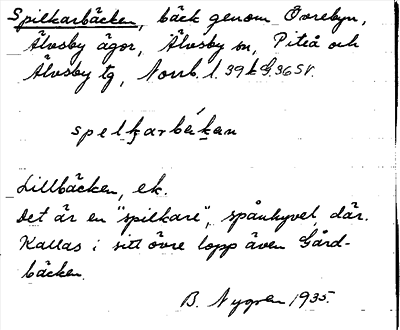 Spilkarbäcken, bäck genom Övrebyn,
Älvsby ägor, Älvsby sn, Piteå och
Älvsby tg, Norrb. l. 39 k G.36 SV.
spelkarbäkan
Lillbäcken, ek.
Det är en "spilkare", spånhyvel, där.
Kallas i sitt övre lopp även Gård-
bäcken.
B. Nygren 1935.